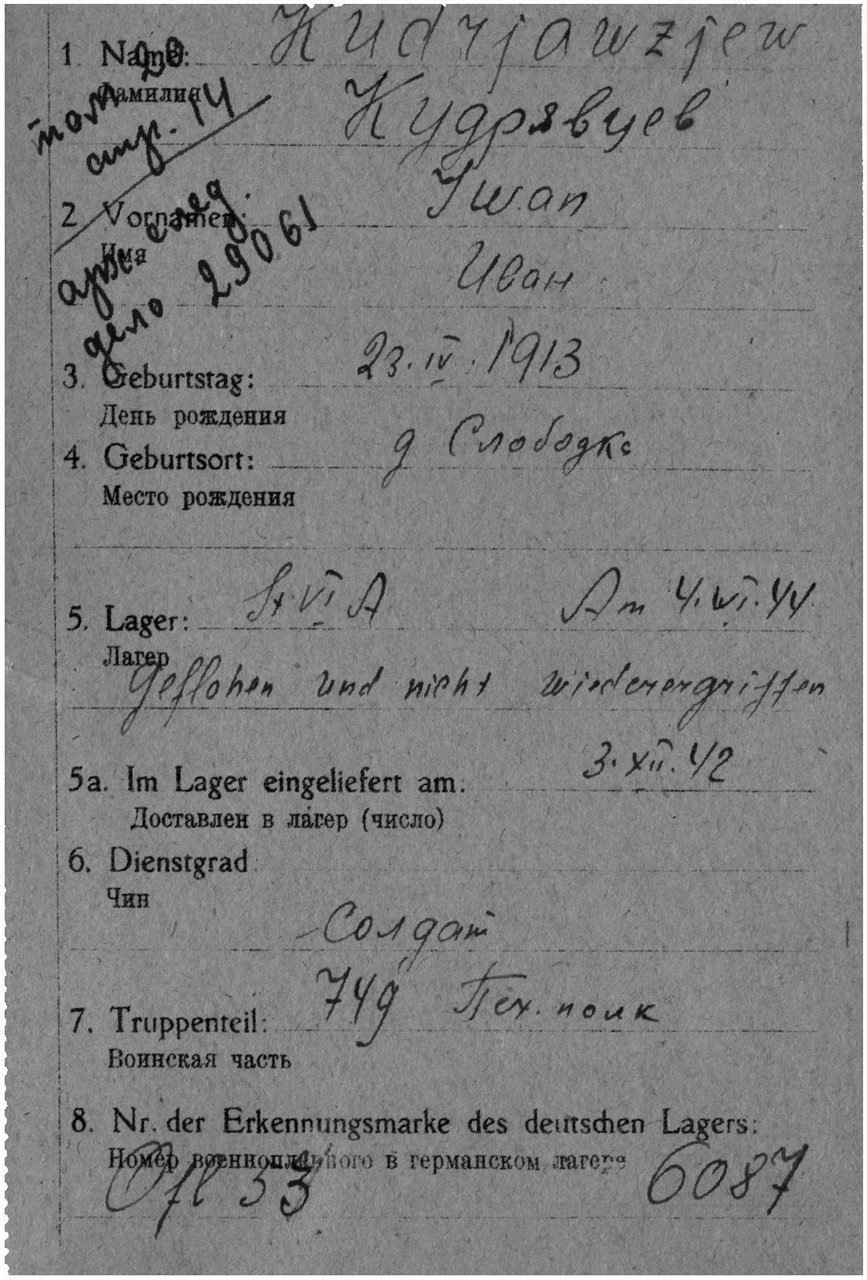 Kudrjawzjew
1. Name:
Фамилия
Кудрявцев
том 20
стр. 14
Iwan
2. Vornamen:
Имя
Иван
арх. след.
дело 29061
23.IV.1913
3. Geburtstag:
День рождения
д Слободка
4. Geburtsort:
Место рождения
St VI A Am 4.VI.44
5. Lager:
Лагер
Geflohen und nicht wiederergriffen
3.XII.42
5a. Im Lager eingeliefert am:
Доставлен в лагер (число)
6. Dienstgrad
Чин
Солдат
749 Пех. полк
7. Truppenteil:
Воинская часть
8. Nr. der Erkennungsmarke des deutschen Lagers:
Номер военнопленного в германском лагере
Ofl 53 6087